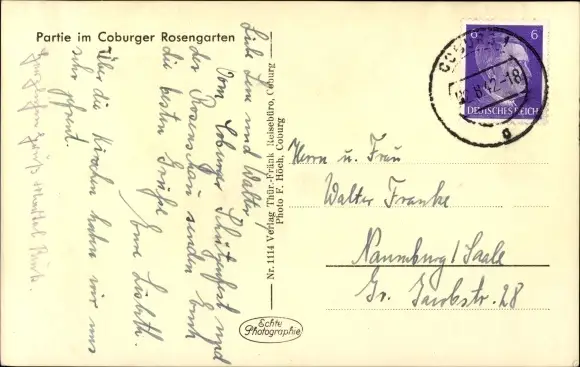 Partie im Coburger Rosengarten
Liebe Lene und Walter!
Vom Coburger Blütenfest und
der Rosenschau senden Euch
die besten Grüße
Eure
Über die Kirschen haben wir uns
sehr gefreut.
Nr. 1114 Verlag Thür.-Fränk Reisebüro, Coburg
Photo F. Höch, Coburg
Echte
Photographie
6
6
DEUTSCHES REICH
COBURG 1
42-18
g
Herrn u. Frau
Walter Franke
Naumburg/Saale
Gr. Jacobstr. 28